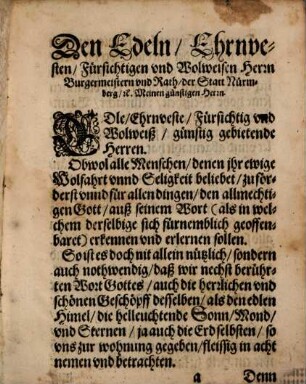 Den Edeln / Ehrnve-
sten / Fürsichtigen vnd Wolweisen Herrn
Burgermeistern vnd Rath / der Statt Nürm-
berg / ꝛc. Meinen günstigen Herrn.
EDle / Ehrnveste / Fürsichtig vnd
Wolweiß / günstig gebietende
Herren.
Obwol alle Menschen / denen jhr ewige
Wolfahrt vnnd Seligkeit beliebet / zu för-
derst vnnd für allen dingen / den allmechti-
gen Gott / auß seinem Wort (als in wel-
chem derselbige sich fürnemblich geoffen-
baret) erkennen vnd erlernen sollen.
So ist es doch nit allein nützlich / sondern
auch nothwendig / daß wir nechst berühr-
ten Wort Gottes / auch die herrlichen vnd
schönen Geschöpff desselben / als den edlen
Himel / die helleuchtende Sonn / Mond /
vnd Sternen / ja auch die Erd selbsten / so
vns zur wohnung gegeben / fleissig in acht
nemen vnd betrachten.
a Denn